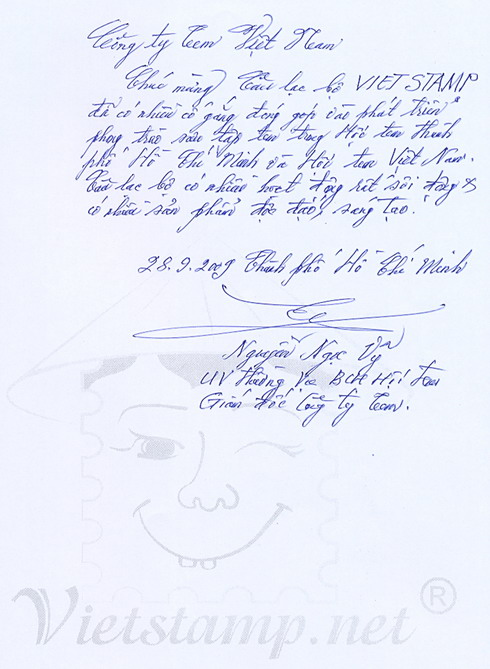 Công ty Tem Việt Nam
Chúc mừng Câu lạc bộ VIETSTAMP
đã có nhiều cố gắng đóng góp vào phát triển
phong trào sưu tập tem trong Hội tem thành
phố Hồ Chí Minh và Hội tem Việt Nam.
Câu lạc bộ có nhiều hoạt động rất sôi động &
có nhiều sản phẩm độc đáo, sáng tạo.
28.9.2009 Thành phố Hồ Chí Minh
Nguyễn Ngọc Vỹ
UV Thường Vụ BCH Hội tem
Giám đốc Công ty Tem.
Vietstamp.net ®